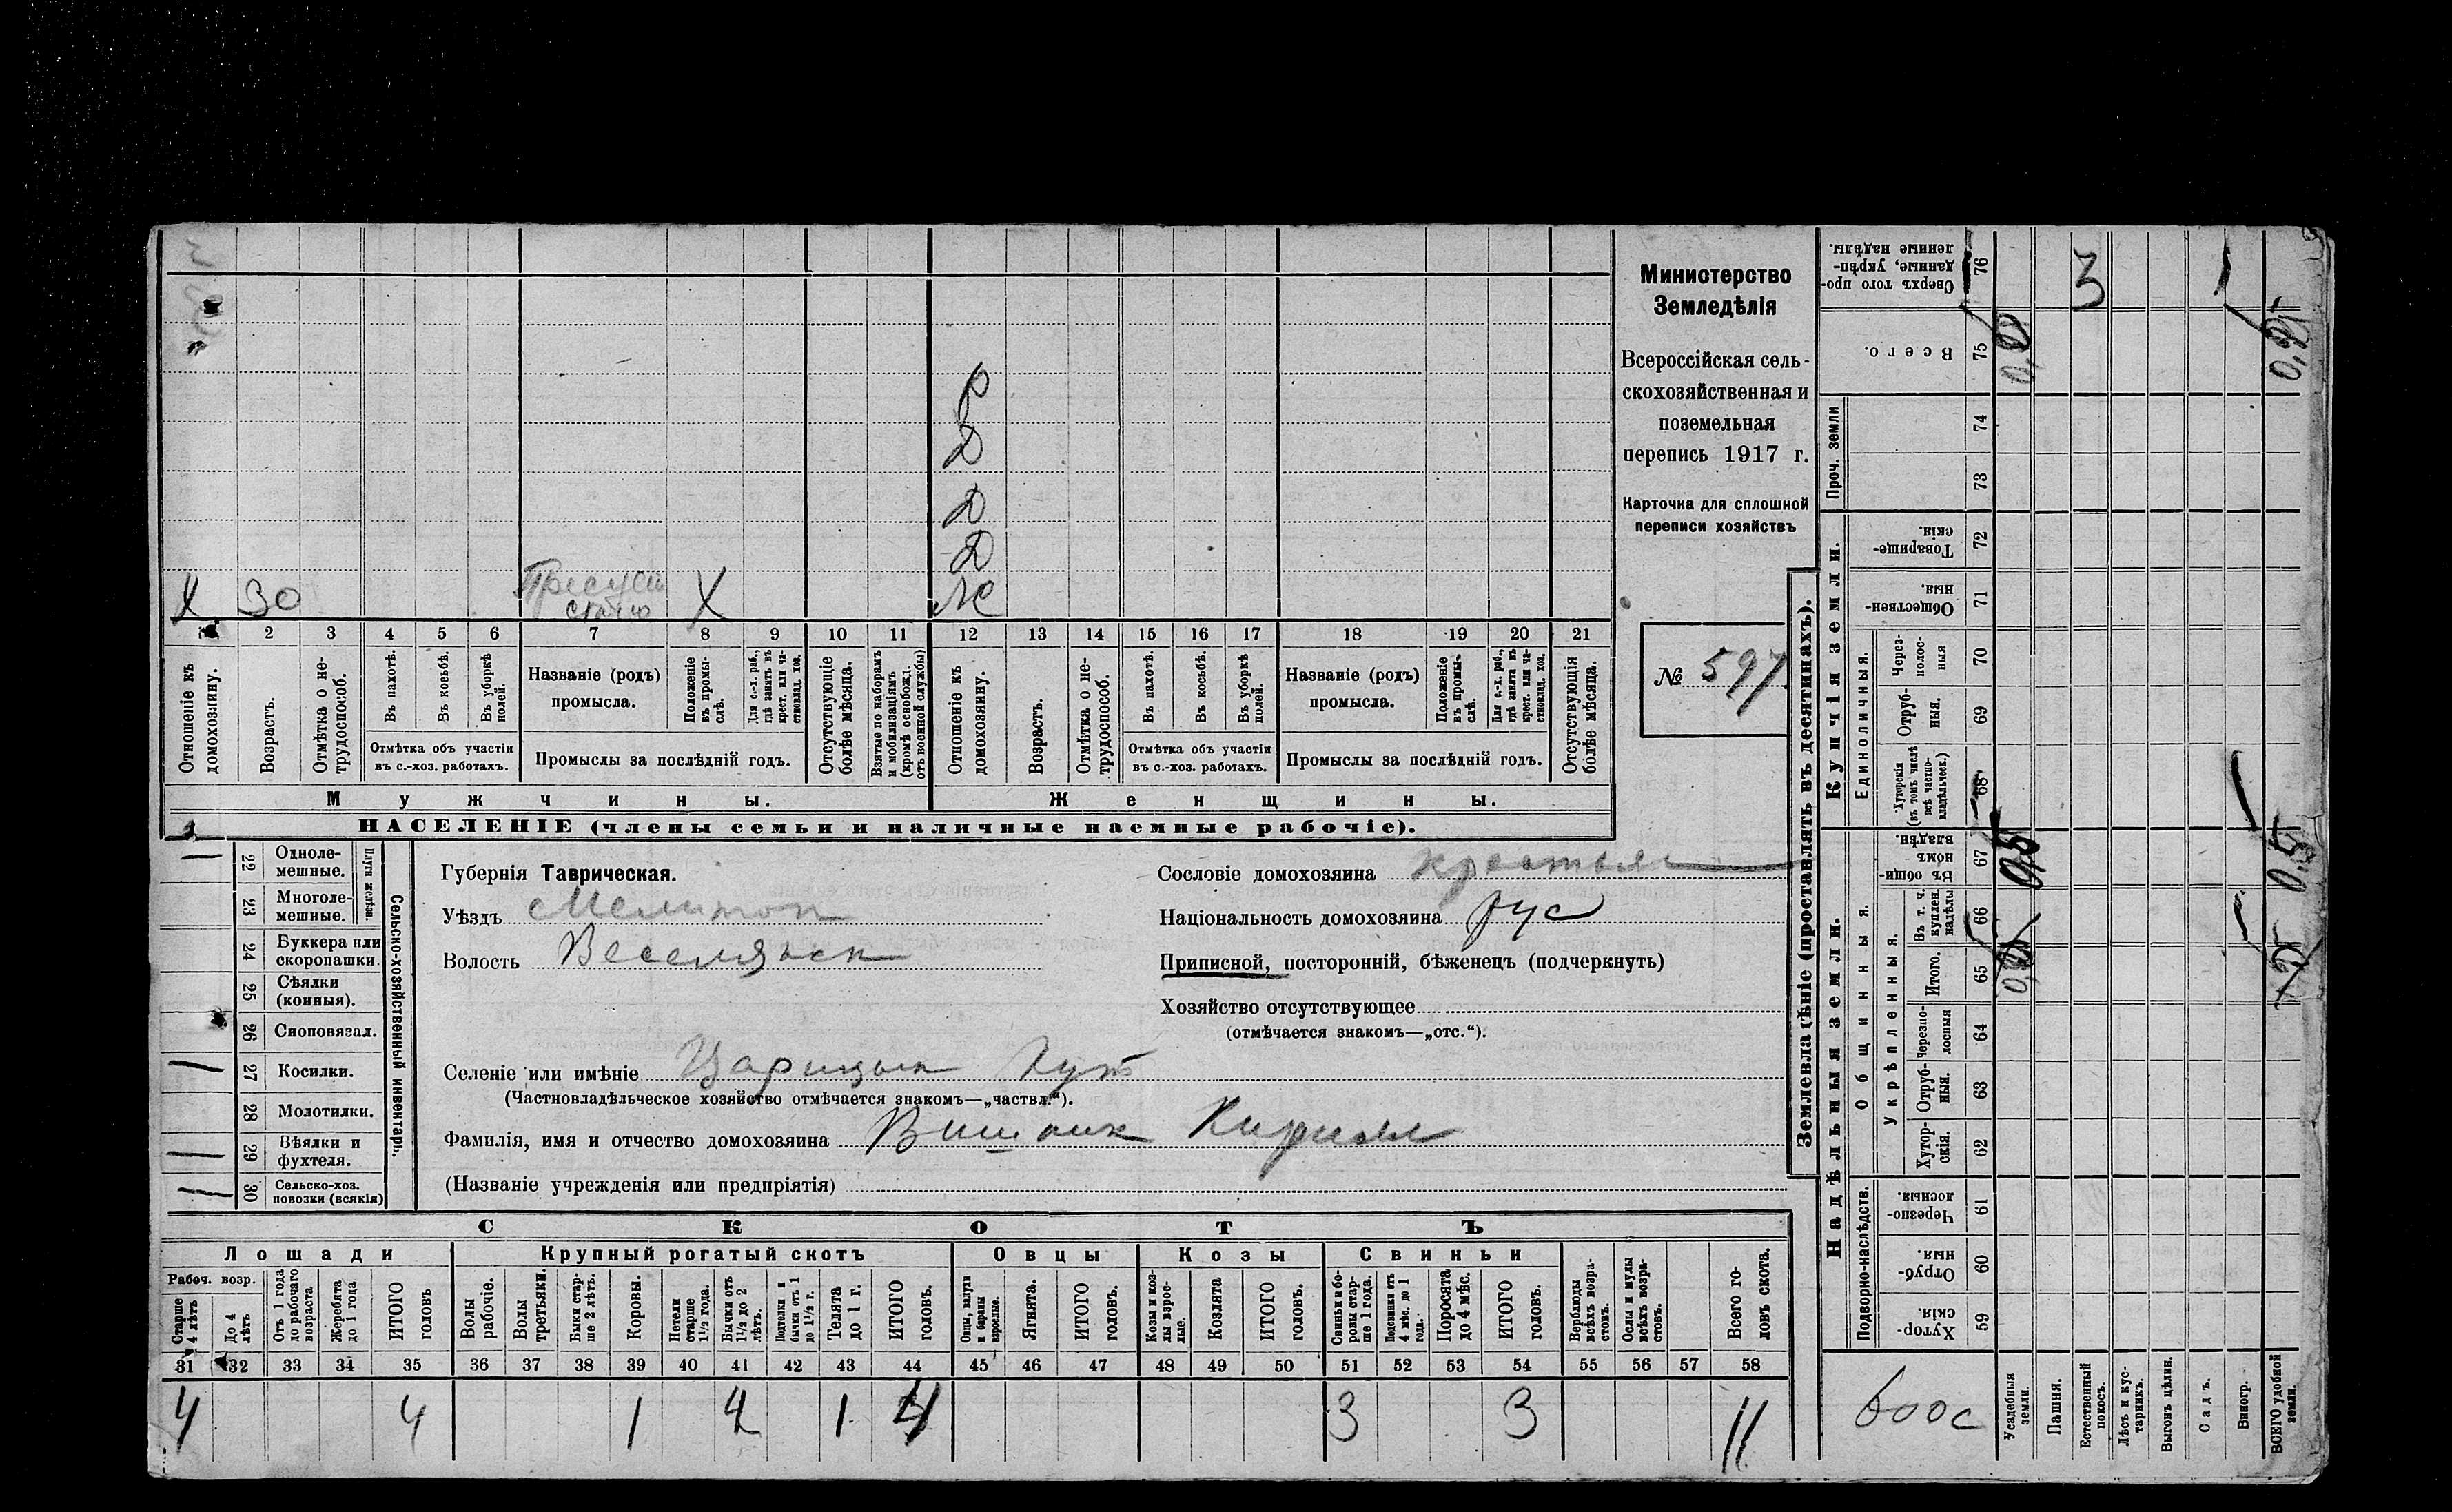 Министерство
Земледѣлія
Всероссійская сель-
скохозяйственная и
поземельная
перепись 1917 г.
Карточка для сплошной
переписи хозяйствъ
№ 597
Р
Д
Д
Д
Ж
Х 30 Х
1 2 3 4 5 6 7 8 9 10 11 12 13 14 15 16 17 18 19 20 21
Отношеніе къ домохозяину.
Возрастъ.
Отмѣтка о не-трудоспособ.
Въ пахотѣ.
Въ косьбѣ.
Въ уборкѣ полей.
Отмѣтка объ участіи
въ с.-хоз. работахъ.
Названіе (родъ)
промысла.
Положеніе въ промы-слѣ.
Для с.-х. раб., гдѣ занятъ въ крест. или ча-стновлад. хоз.
Промыслы за послѣдній годъ.
Отсутствующіе болѣе мѣсяца.
Взятые по наборамъ и мобилизаціямъ (кромѣ освобожд. отъ военной службы)
Отношеніе къ домохозяину.
Возрастъ.
Отмѣтка о не-трудоспособ.
Въ пахотѣ.
Въ косьбѣ.
Въ уборкѣ полей.
Отмѣтка объ участіи
въ с.-хоз. работахъ.
Названіе (родъ)
промысла.
Положеніе въ промы-слѣ.
Для с.-х. раб., гдѣ занята въ крест. или ча-стновлад. хоз.
Промыслы за послѣдній годъ.
Отсутствующія болѣе мѣсяца.
Мужчины.
Женщины.
НАСЕЛЕНІЕ (члены семьи и наличные наемные рабочіе).
22 Одноле-мешные.
23 Многоле-мешные.
Плуги желѣзн.
24 Буккера или скоропашки.
25 Сѣялки (конныя).
26 Сноповязал.
27 Косилки.
28 Молотилки.
29 Вѣялки и фухтеля.
30 Сельско-хоз. повозки (всякія)
Сельско-хозяйственный инвентарь.
Губернія Таврическая.
Уѣздъ Мелитоп
Волость Веселянск
Селеніе или имѣніе Царицын Кут
(Частновладѣльческое хозяйство отмѣчается знакомъ—„частвл.“).
Фамилія, имя и отчество домохозяина Вишаик Кирилл
(Названіе учрежденія или предпріятія)
Сословіе домохозяина крестьян
Національность домохозяина рус
Приписной, посторонній, бѣженецъ (подчеркнуть)
Хозяйство отсутствующее
(отмѣчается знакомъ—„отс.“).
СКОТЪ
Лошади Крупный рогатый скотъ Овцы Козы Свиньи
Рабоч. возр.
Старше 4 лѣтъ
До 4 лѣтъ
Отъ 1 года до рабочаго возраста
Жеребята до 1 года
ИТОГО головъ
Волы рабочіе.
Волы третьяки.
Быки стар-ше 2 лѣтъ.
Коровы.
Нетели старше 1½ года.
Бычки отъ 1½ до 2 лѣтъ.
Подтелки и бычки отъ 1 до 1½ г.
Телята до 1 г.
ИТОГО головъ.
Овцы, валухи и бараны взрослые.
Ягнята.
ИТОГО головъ.
Козы и коз-лы взрос-лые.
Козлята
ИТОГО головъ.
Свиньи и бо-ровы стар-ше 1 года.
Подсвинки отъ 4 мѣс. до 1 года.
Поросята до 4 мѣс.
ИТОГО головъ.
Верблюды всѣхъ возра-стовъ.
Ослы и мулы всѣхъ возра-стовъ.
Всего го-ловъ скота.
31 32 33 34 35 36 37 38 39 40 41 42 43 44 45 46 47 48 49 50 51 52 53 54 55 56 57 58
4 4 1 2 1 4 3 3 11
Землевладѣніе (проставлять въ десятинахъ).
Надѣльныя земли.
Купчія земли.
Проч. земли
Подворно-наслѣдств.
Общинныя.
Укрѣпленныя.
Единоличныя.
Хутор-скія. 59
Отруб-ныя. 60
Черезпо-лосныя. 61
Хутор-скія. 62
Отруб-ныя. 63
Черезпо-лосныя 64
Итого. 65
Въ т. ч. куплен. надѣлы 66
Въ общин-номъ владѣн. 67
Хуторскія (въ томъ числѣ всѣ частно-владѣльческ.) 68
Отруб-ныя. 69
Через-полос-ныя 70
Обществен-ныя. 71
Товарище-скія. 72
73
74
Всего. 75
Сверхъ того про-данные, укрѣп-ленные надѣлы. 76
600 с
Усадебныя земли.
Пашня.
Естественный покосъ.
Лѣсъ и кус-тарникъ.
Выгонъ цѣлин.
Садъ.
Виногр.
ВСЕГО удобной земли.
3
0,5